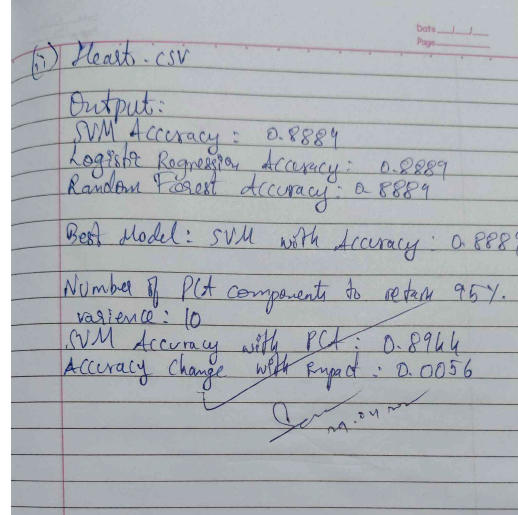 Date
Page
(ii) Heart.csv
Output:
SVM Accuracy: 0.8889
Logistic Regression Accuracy: 0.8889
Random Forest Accuracy: 0.8889
Best Model: SVM with Accuracy: 0.8889
Number of PCA components to retain 95%.
varience: 10
SVM Accuracy with PCA: 0.8944
Accuracy Change with Impact: 0.0056